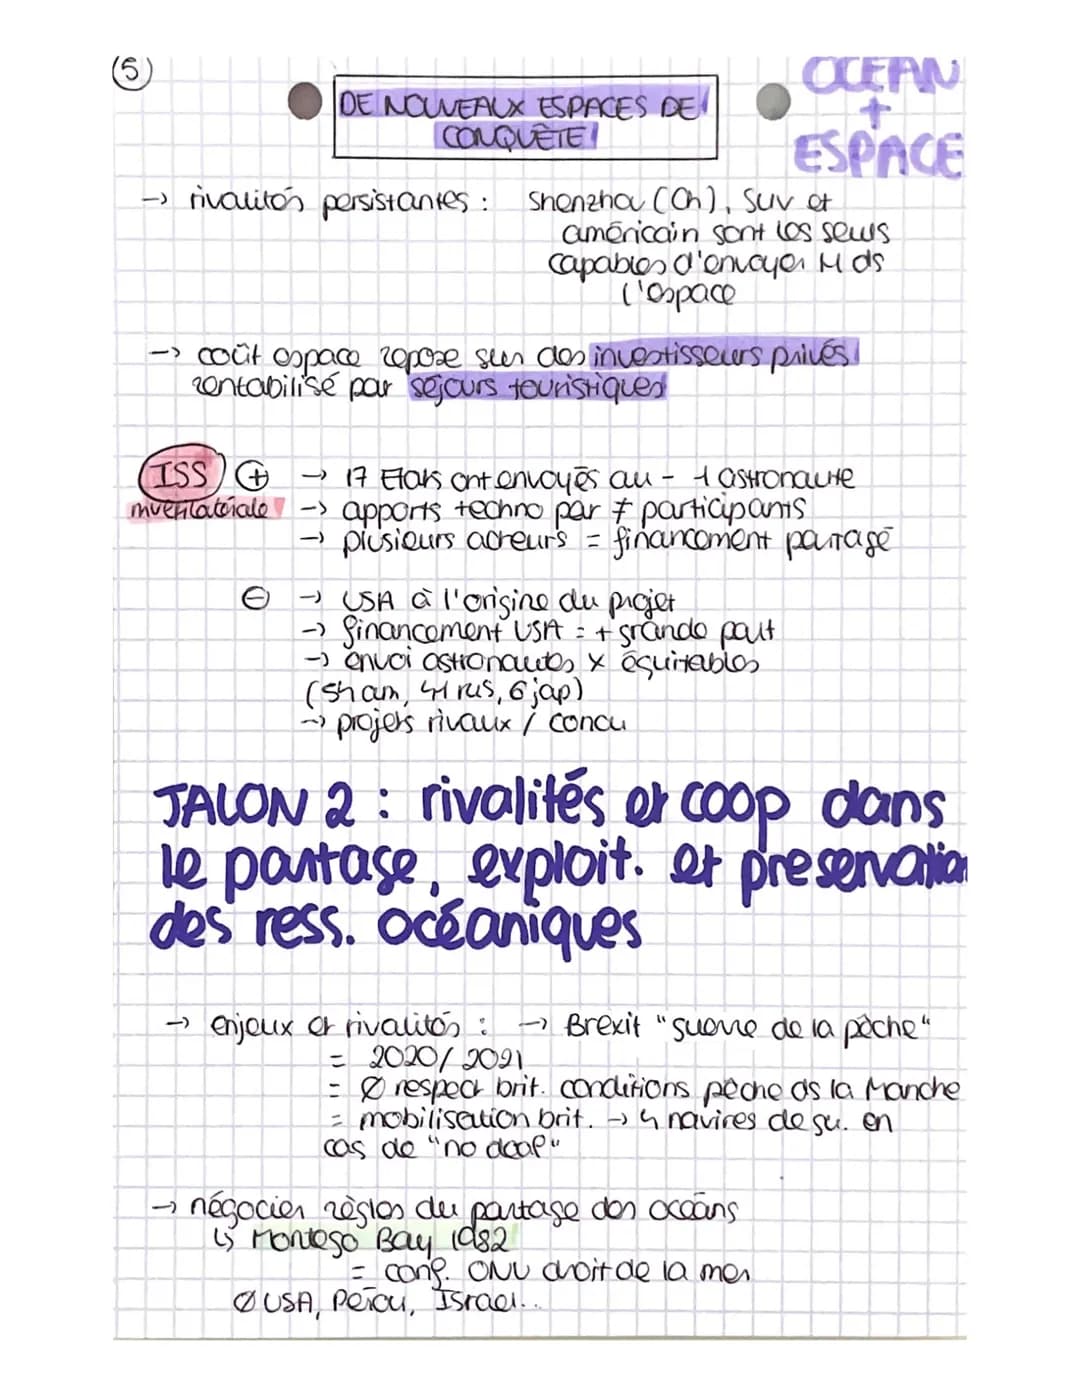 5
OCEAN
+
ESPACE
DE NOUVEAUX ESPACES DE
CONQUÊTE
→ rivalités persistantes : Shenzhou (Ch), Suv et
américain sont les seuls
capables d'envoyer M ds
l'espace
→ coût espace repose sur des investisseurs privés
rentabilisé par séjours touristiques
ISS ⊕ → 17 Etats ont envoyés au - 1 astronaute
→ apports techno par ≠ participants
→ plusieurs acteurs = financement partagé
⊖ → USA à l'origine du projet
→ financement USA = + grande part
→ envoi astronautes × équitables
rus, 6 jap)
→ projets rivaux / concu
JALON 2 : rivalités et coop dans
le partage, exploit. et preservation
des ress. océaniques
→ enjeux et rivalités : → Brexit "guerre de la pêche"
= 2020/2021
= Ø respect brit. conditions pêche ds la Manche
= mobilisation brit. → 4 navires de gu. en
cas de "no deal"
→ négocier règles du partage des océans
↳ Montego Bay 1982
= conf. ONU droit de la mer
Ø USA, Pérou, Israel..